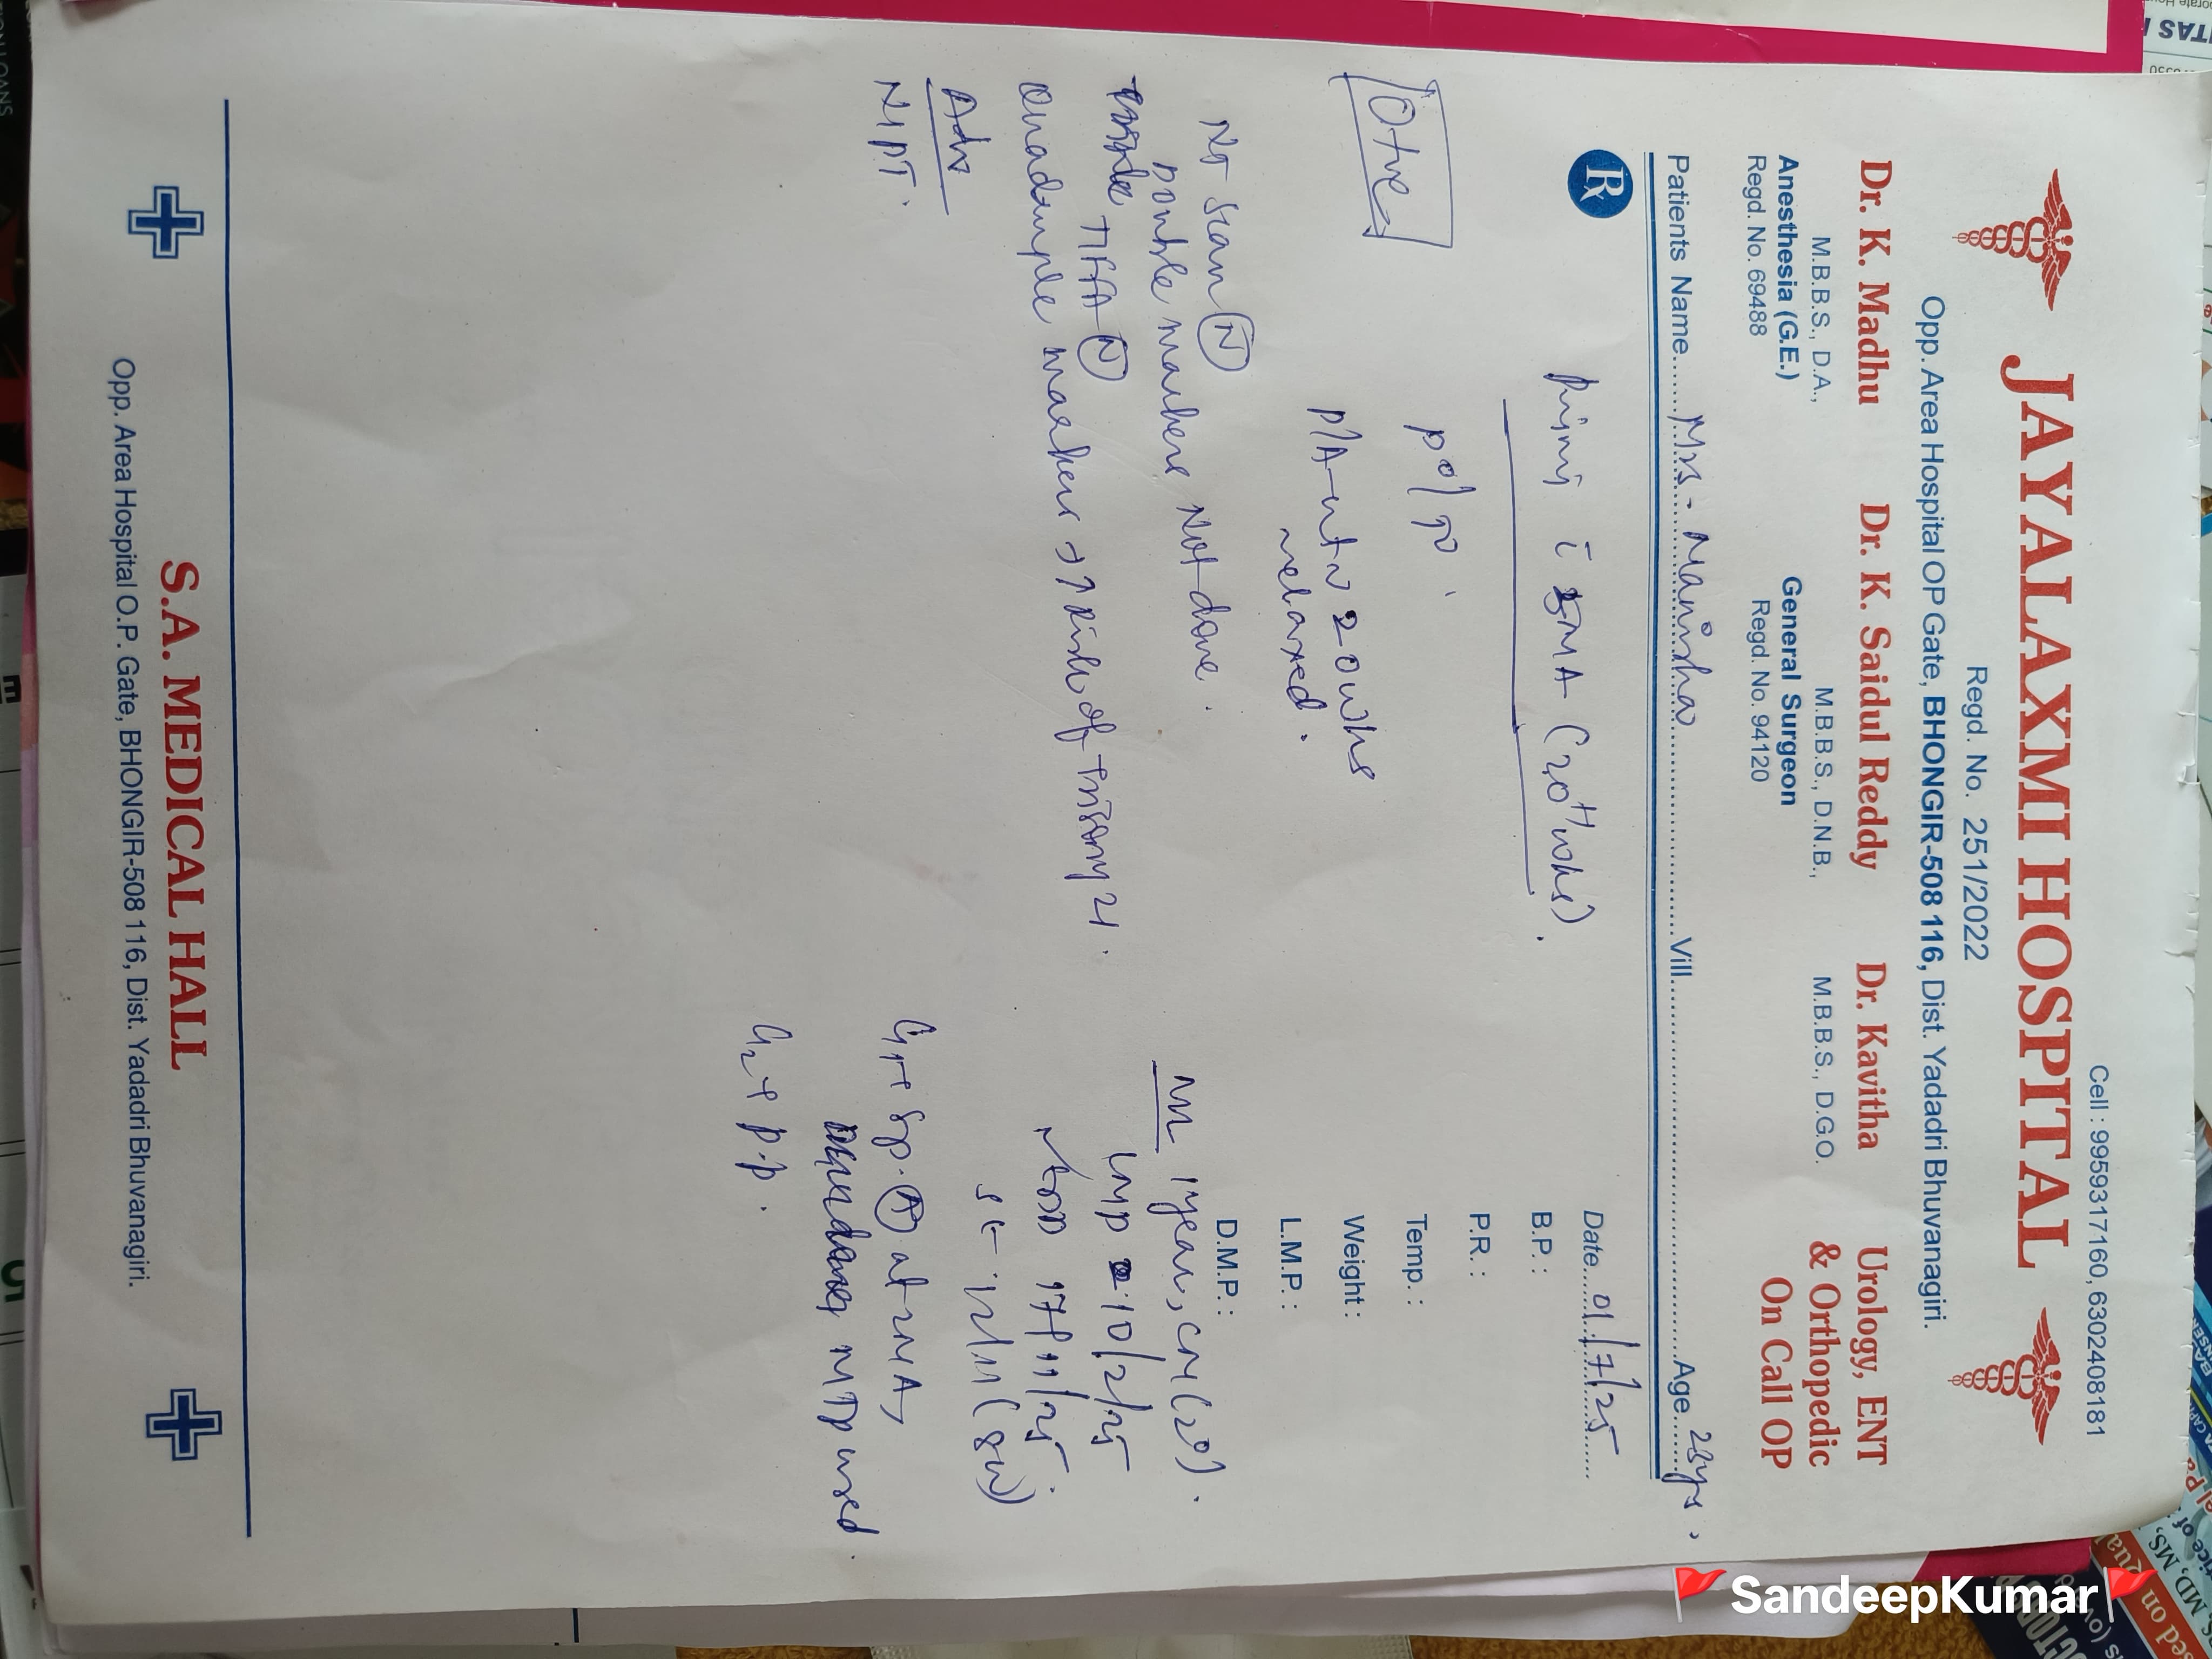 Cell : 9959317160, 6302408181
JAYALAXMI HOSPITAL
Regd. No. 251/2022
Opp. Area Hospital OP Gate, BHONGIR-508 116, Dist. Yadadri Bhuvanagiri.
Dr. K. Madhu
M.B.B.S., D.A.,
Anesthesia (G.E.)
Regd. No. 69488
Dr. K. Saidul Reddy
M.B.B.S., D.N.B.,
General Surgeon
Regd. No. 94120
Dr. Kavitha
M.B.B.S., D.G.O.
Urology, ENT
& Orthopedic
On Call OP
Patients Name......Mrs. Manisha......Vill......Age......28yrs.
Rx
Date....01/7/25....
B.P. :
P.R. :
Temp. :
Weight :
L.M.P. :
D.M.P. :
Primi c 5MA (20+1 wks).
P°/P°
O+ve
P/A - ut ~ 20wks
relaxed.
NT scan (N)
Double markers Not done.
TIFFA (N)
Quadruple marker → ↑ Risk of trisomy 21.
Adv
NIPT.
1year, CM (2°).
LMP - 10/2/25
EDD 17/11/25.
G1 - Sp. (A) at 2MA,
MTP used.
G2 - P.P.
S.A. MEDICAL HALL
Opp. Area Hospital O.P. Gate, BHONGIR-508 116, Dist. Yadadri Bhuvanagiri.
🚩SandeepKumar🚩